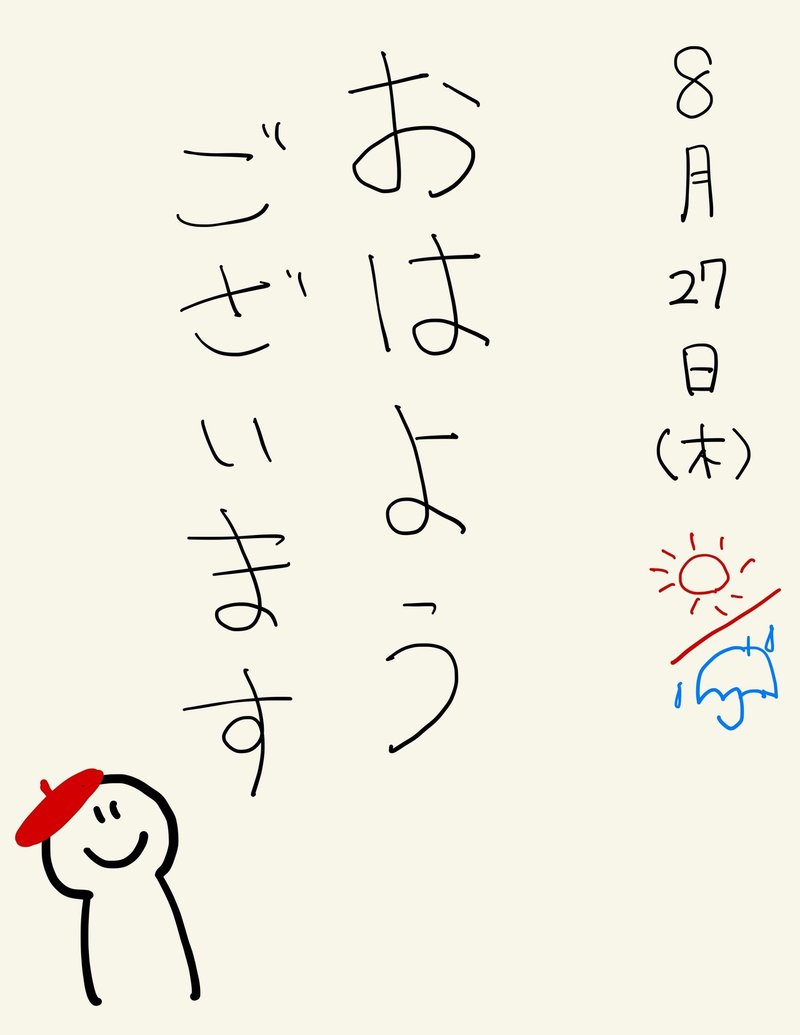 8月27日(木)
おはよう
ございます